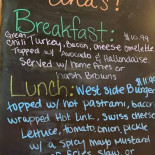 Breakfast: $10.99
Great Turkey, Bacon, cheese omelette
Chili
Topped w/ Avocado & Hollandaise
Served w/ home fries or
hash browns
Lunch: West Side Burger
topped w/ hot pastrami, bacon
wrapped Hot Link, Swiss cheese
Lettuce, tomato, onion, pickle
w/ a spicy mayo Mustard
Fries, Slaw or